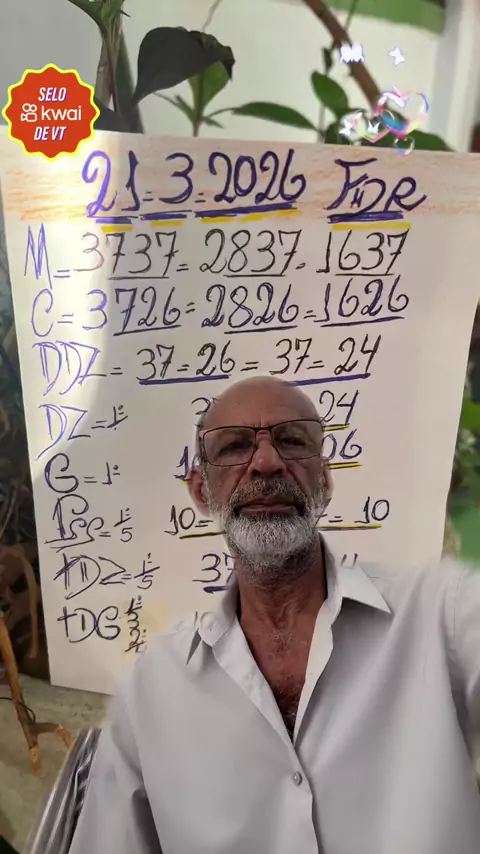 SELO
kwai
DE VT
21=3=2026 FDR
M=3737=2837=1637
C=3726=2826=1626
DDZ=37=26=37=24
DZ=1º 24
G=1º 06
10= = 10
TDZ=1º/5 37
TDG